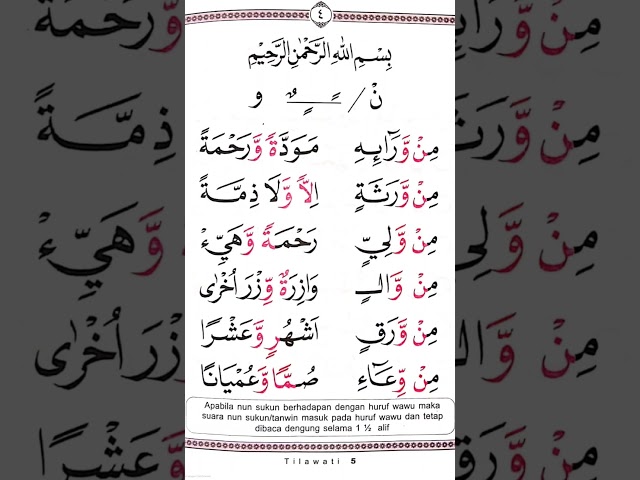 ٤
بِسْمِ اللهِ الرَّحْمٰنِ الرَّحِيْمِ
نْ / ـًـــٍـــٌ و
مِنْ وَّرَآئِهِ مَوَدَّةً وَّرَحْمَةً
مِنْ وَّرَثَةِ اِلاًّ وَّلَا ذِمَّةً
مِنْ وَّلِيٍّ رَحْمَةً وَّهَيِّءْ
مِنْ وَّالٍ وَازِرَةٌ وِّزْرَ اُخْرٰى
مِنْ وَّرَقٍ اَشْهُرٍ وَّعَشْرًا
مِنْ وِّعَآءِ صُمًّا وَّعُمْيَانًا
Apabila nun sukun berhadapan dengan huruf wawu maka
suara nun sukun/tanwin masuk pada huruf wawu dan tetap
dibaca dengung selama 1 ½ alif
Tilawati 5